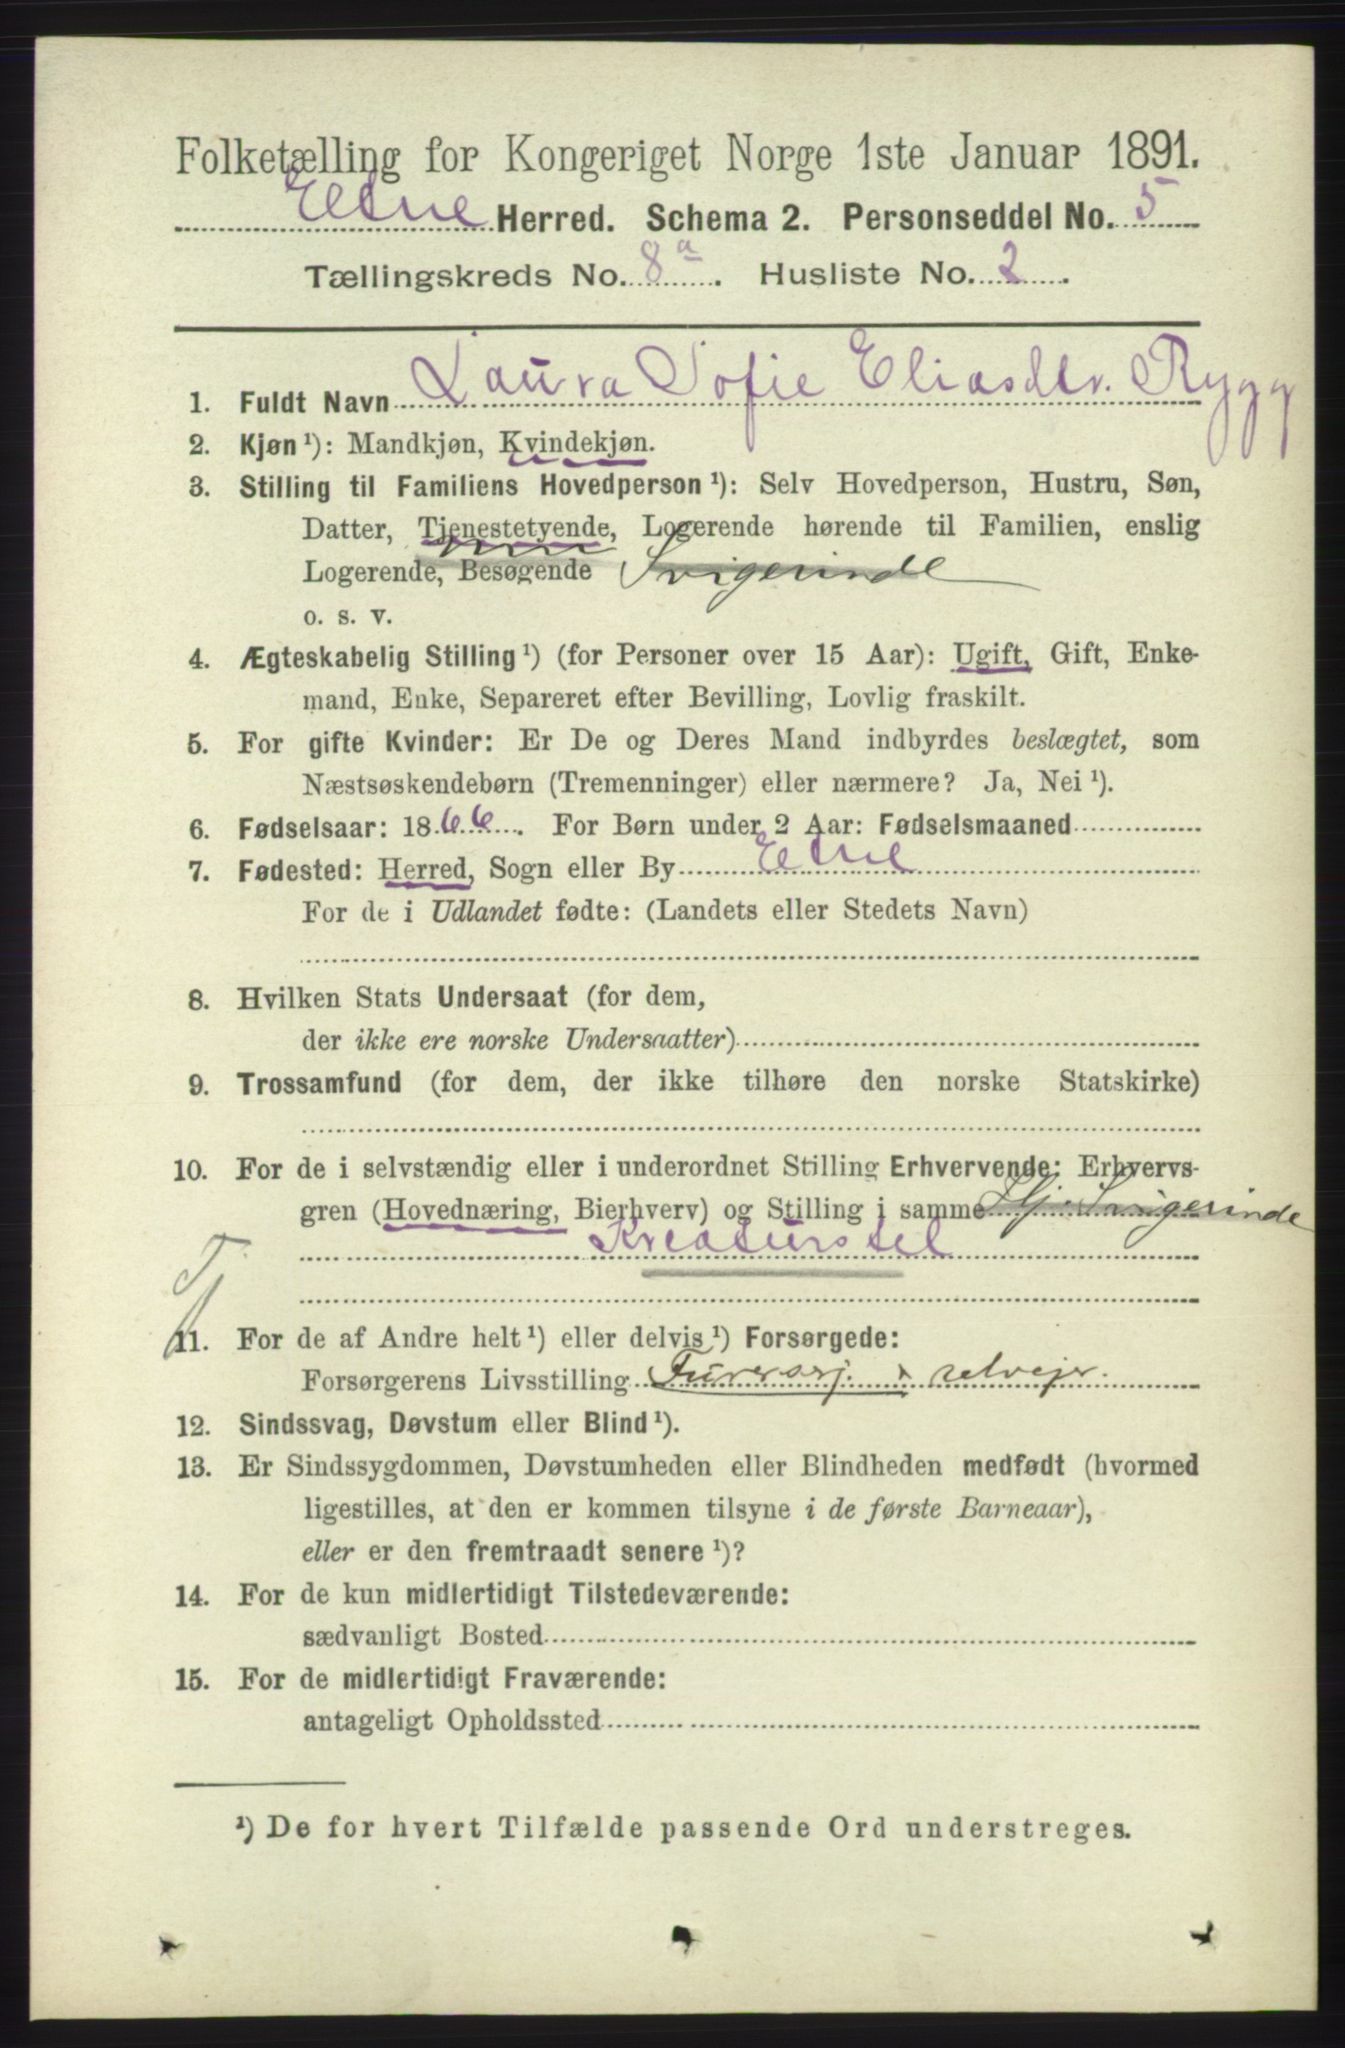 Folketælling for Kongeriget Norge 1ste Januar 1891.
Etne Herred. Schema 2. Personseddel No. 5
Tællingskreds No. 8a. Husliste No. 2.
1. Fuldt Navn Laura Sofie Eliasdtr. Rygg
2. Kjøn ¹): Mandkjøn, Kvindekjøn.
3. Stilling til Familiens Hovedperson ¹): Selv Hovedperson, Hustru, Søn,
Datter, Tjenestetyende, Logerende hørende til Familien, enslig
Logerende, Besøgende Svigerinde
o. s. v.
4. Ægteskabelig Stilling ¹) (for Personer over 15 Aar): Ugift, Gift, Enke-
mand, Enke, Separeret efter Bevilling, Lovlig fraskilt.
5. For gifte Kvinder: Er De og Deres Mand indbyrdes beslægtet, som
Næstsøskendebørn (Tremenninger) eller nærmere? Ja, Nei ¹).
6. Fødselsaar: 1866. For Børn under 2 Aar: Fødselsmaaned
7. Fødested: Herred, Sogn eller By Etne
For de i Udlandet fødte: (Landets eller Stedets Navn)
8. Hvilken Stats Undersaat (for dem,
der ikke ere norske Undersaatter)
9. Trossamfund (for dem, der ikke tilhøre den norske Statskirke)
10. For de i selvstændig eller i underordnet Stilling Erhvervende: Erhvervs-
gren (Hovednæring, Bierhverv) og Stilling i samme Svigerinde
Kreaturstel
Tj
11. For de af Andre helt ¹) eller delvis ¹) Forsørgede:
Forsørgerens Livsstilling selvejr.
12. Sindssvag, Døvstum eller Blind ¹).
13. Er Sindssygdommen, Døvstumheden eller Blindheden medfødt (hvormed
ligestilles, at den er kommen tilsyne i de første Barneaar),
eller er den fremtraadt senere ¹)?
14. For de kun midlertidigt Tilstedeværende:
sædvanligt Bosted
15. For de midlertidigt Fraværende:
antageligt Opholdssted
¹) De for hvert Tilfælde passende Ord understreges.